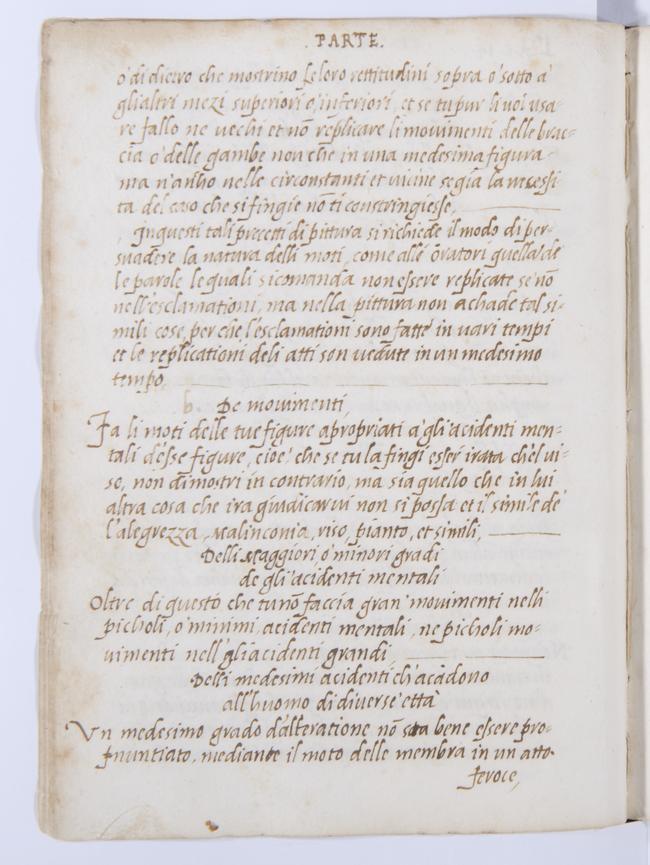 . PARTE .
o' di dietro che mostrino le loro rettitudini sopra o' sotto à
gli altri mezi superiori o' inferiori, et se tu pur li voi usa-
re fallo ne uechi et nō replicare li movimenti delle brac-
cia o' delle gambe non che in una medesima figura
ma n'ancho nelle circonstanti et vicine se gia la necessi-
ta del caso che si fingie nō ti constringiesse.
In questi tali precetti di pittura si richiede il modo di per-
suadere la natura delli moti, come alle oratori quella de
le parole le quali si comanda non essere replicate se nō
nell'esclamationi, ma nella pittura non achade tal si-
mili cose, per che l'esclamationi sono fatte in vari tempi
et le replicationi deli atti son vedute in un medesimo
tempo
b. De movimenti,
Fa li moti delle tue figure apropriati a' gli acidenti men-
tali d'esse figure, cioe' che se tu la fingi esser irata che'l vi-
so, non dimostri in contrario, ma sia quello che in lui
altra cosa che ira giudicar vi non si possa et il simile de
l'alegrezza, Malinconia, riso, pianto, et simili,
Delli Maggiori o' minori gradi
de gli acidenti mentali
Oltre di questo che tu nō faccia gran' movimenti nelli
picholi, o' minimi acidenti mentali, ne picholi mo-
vimenti nell'gli acidenti grandi,
Delli medesimi acidenti ch'acadono
all'huomo di diverse' età
Vn medesimo grado d'alteratione nō sta bene essere pro-
nuntiato, mediante il moto delle membra in un atto
feroce,